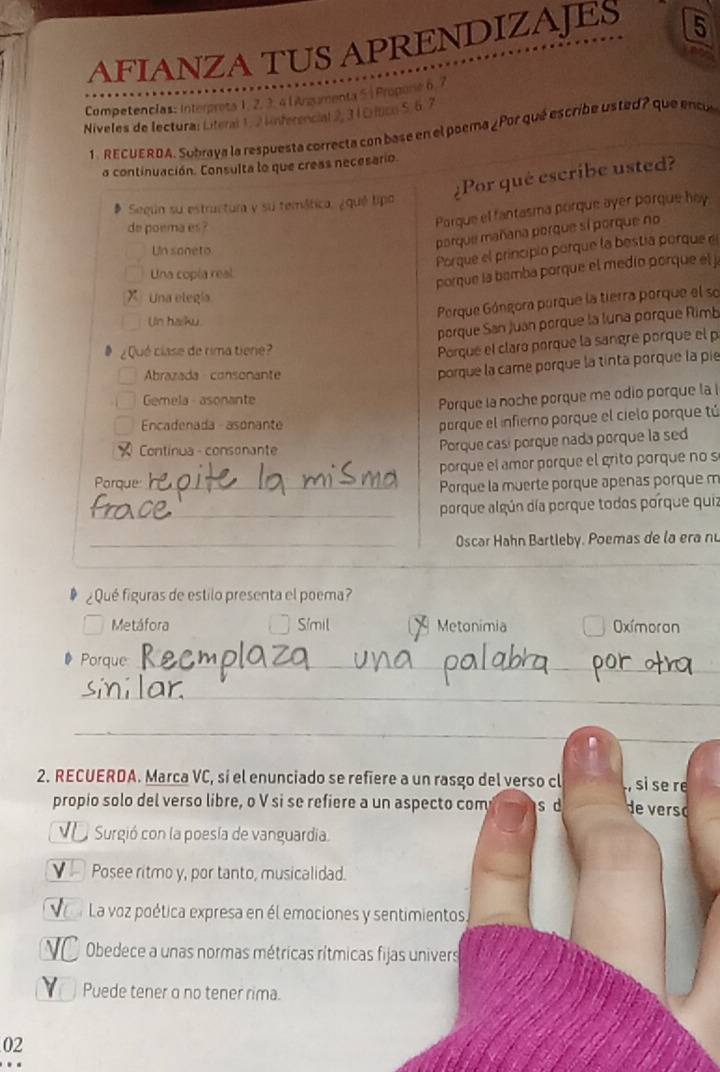 AFIANZA TUS APRENDIZAJES
5
Competencias: Interpreta 1, 2, 3, 4 | Argumenta 5 | Propone 6, 7
Niveles de lectura: Literal 1, 2 | Inferencial 2, 3 | Crítico 5, 6, 7
1. RECUERDA. Subraya la respuesta correcta con base en el poema ¿Por qué escribe usted? que
a continuación. Consulta lo que creas necesario.
Según su estructura y su temática, ¿qué tipo
de poema es?
Un soneto
Una copla real
X Una elegía
Un haiku
¿Qué clase de rima tiene?
Abrazada - consonante
Gemela - asonante
Encadenada - asonante
X Continua - consonante
Porque: repite la misma
frace
¿Por qué escribe usted?
Porque el fantasma porque ayer porque hoy
porque mañana porque sí porque no
Porque el principio porque la bestia porque
porque la bomba porque el medio porque el
Porque Góngora porque la tierra porque el
porque San Juan porque la luna porque Rimb
Porque el claro porque la sangre porque el
porque la carne porque la tinta porque la
Porque la noche porque me odio porque la
porque el infierno porque el cielo porque tú
Porque casi porque nada porque la sed
porque el amor porque el grito porque no
Porque la muerte porque apenas porque
porque algún día porque todos porque quiz
Oscar Hahn Bartleby. Poemas de la era
¿Qué figuras de estilo presenta el poema?
Metáfora Símil X Metonimia Oxímoron
Porque Reemplaza una palabra por otra
sinilar.
2. RECUERDA. Marca VC, si el enunciado se refiere a un rasgo del verso cl , si se re
propio solo del verso libre, o V si se refiere a un aspecto com de verso
VL Surgió con la poesía de vanguardia.
V Posee ritmo y, por tanto, musicalidad.
V La voz poética expresa en él emociones y sentimientos.
VC Obedece a unas normas métricas rítmicas fijas univers
V Puede tener o no tener rima.
02